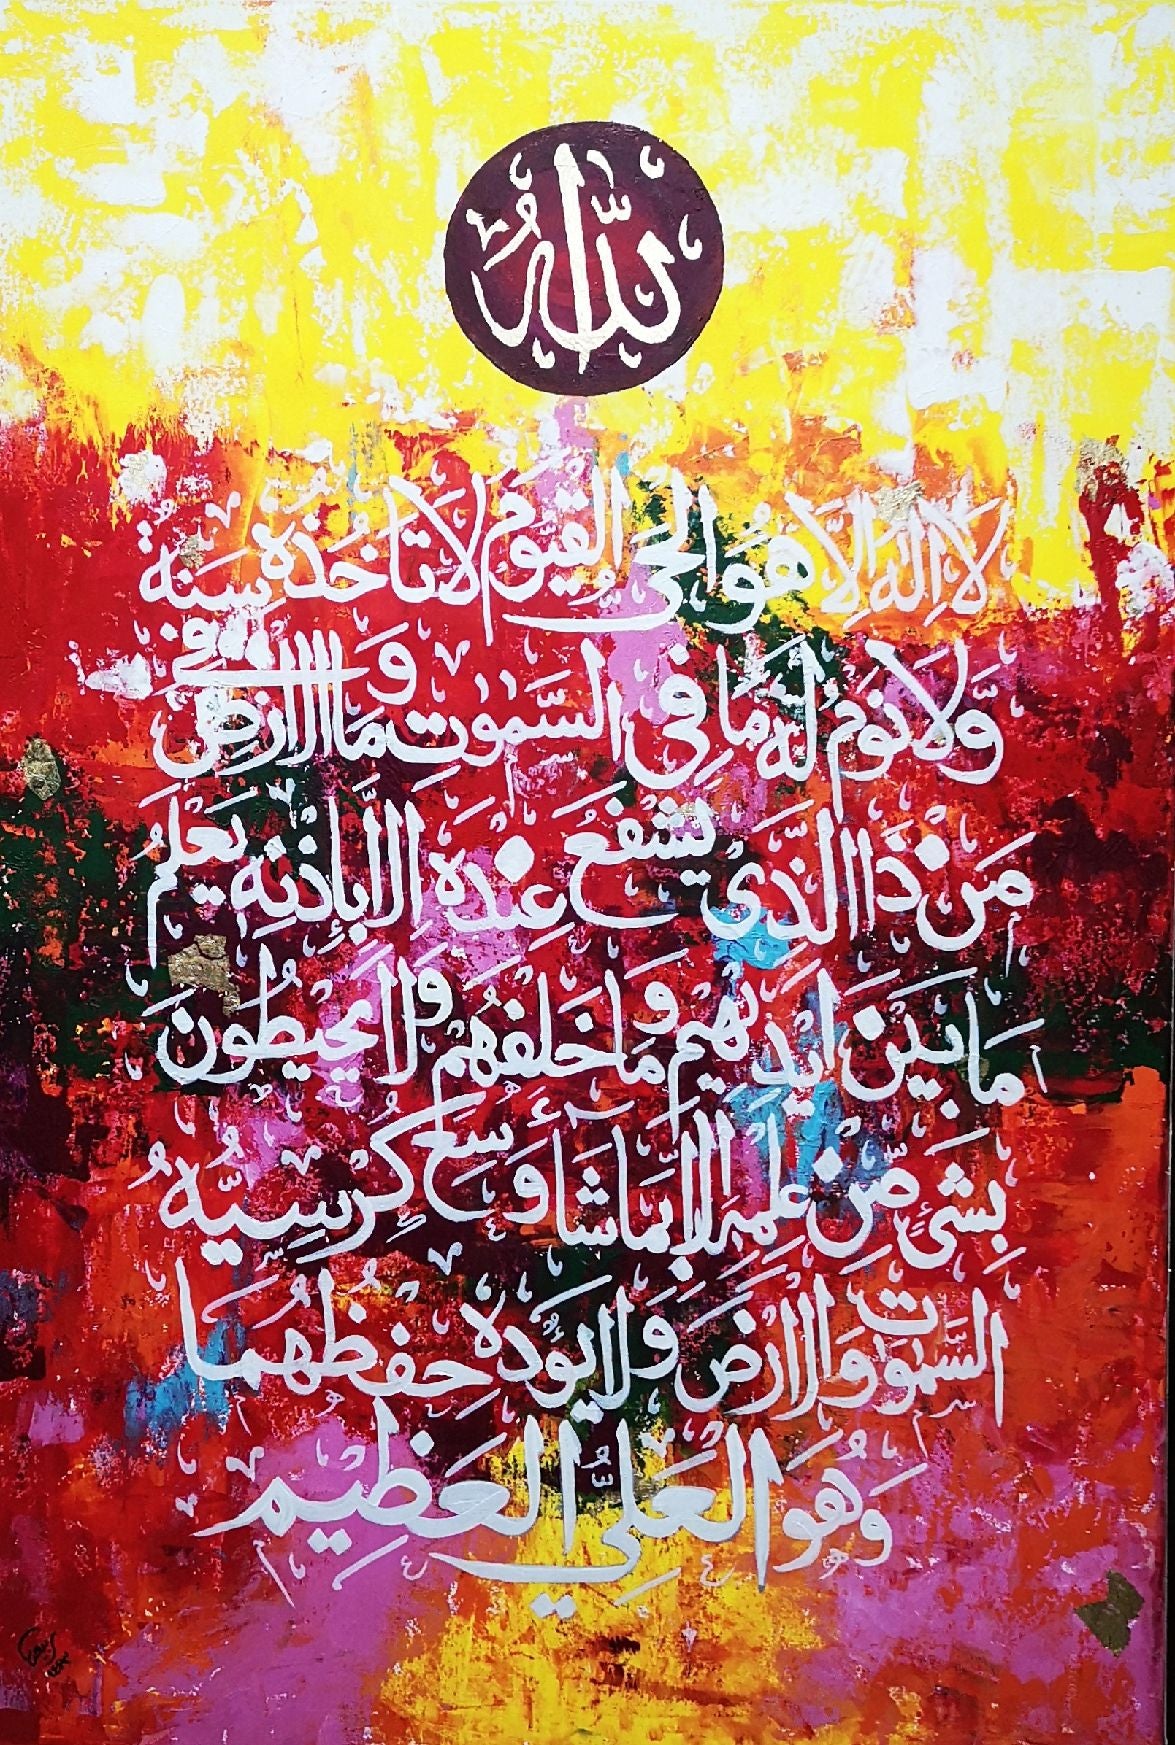 اللّٰهُ
لَا اِلٰهَ اِلَّا هُوَ الْحَیُّ الْقَیُّوْمُ لَا تَاْخُذُهٗ سِنَةٌ
وَّلَا نَوْمٌ لَهٗ مَا فِی السَّمٰوٰتِ وَمَا فِی الْاَرْضِ
مَنْ ذَا الَّذِیْ یَشْفَعُ عِنْدَهٗ اِلَّا بِاِذْنِهٖ یَعْلَمُ
مَا بَیْنَ اَیْدِیْهِمْ وَمَا خَلْفَهُمْ وَلَا یُحِیْطُوْنَ
بِشَیْءٍ مِّنْ عِلْمِهٖ اِلَّا بِمَا شَآءَ وَسِعَ كُرْسِیُّهُ
السَّمٰوٰتِ وَالْاَرْضَ وَلَا یَـُٔوْدُهٗ حِفْظُهُمَا
وَهُوَ الْعَلِیُّ الْعَظِیْمُ